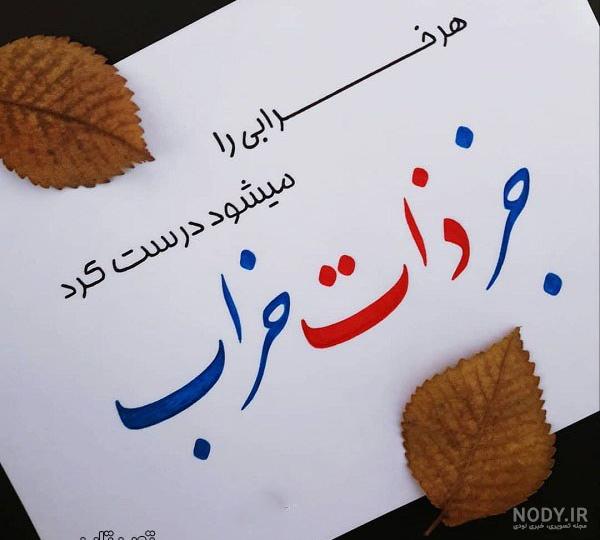 هر خـــــــــرابی را
میشود درست کرد
جز ذات خراب
NODY.IR
مجله تصویری، خبری نودی